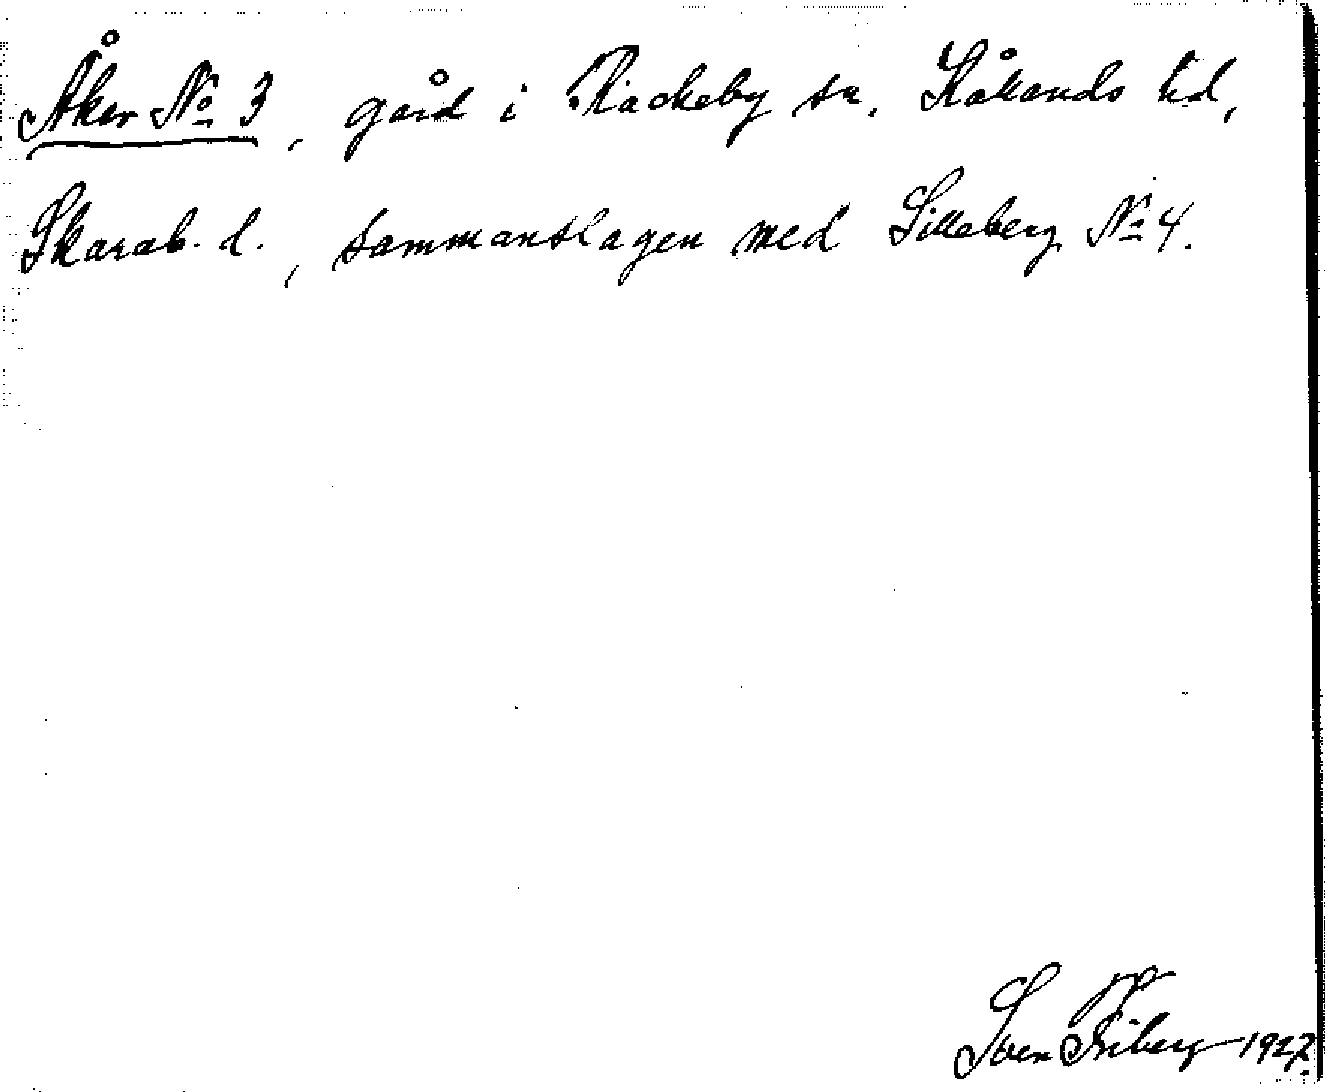 Åker No 3, gård i Rackeby sn. Kållands hd,
Skarab. l., sammanslagen med Lilleberg No 4.
Sven Friberg 1927.